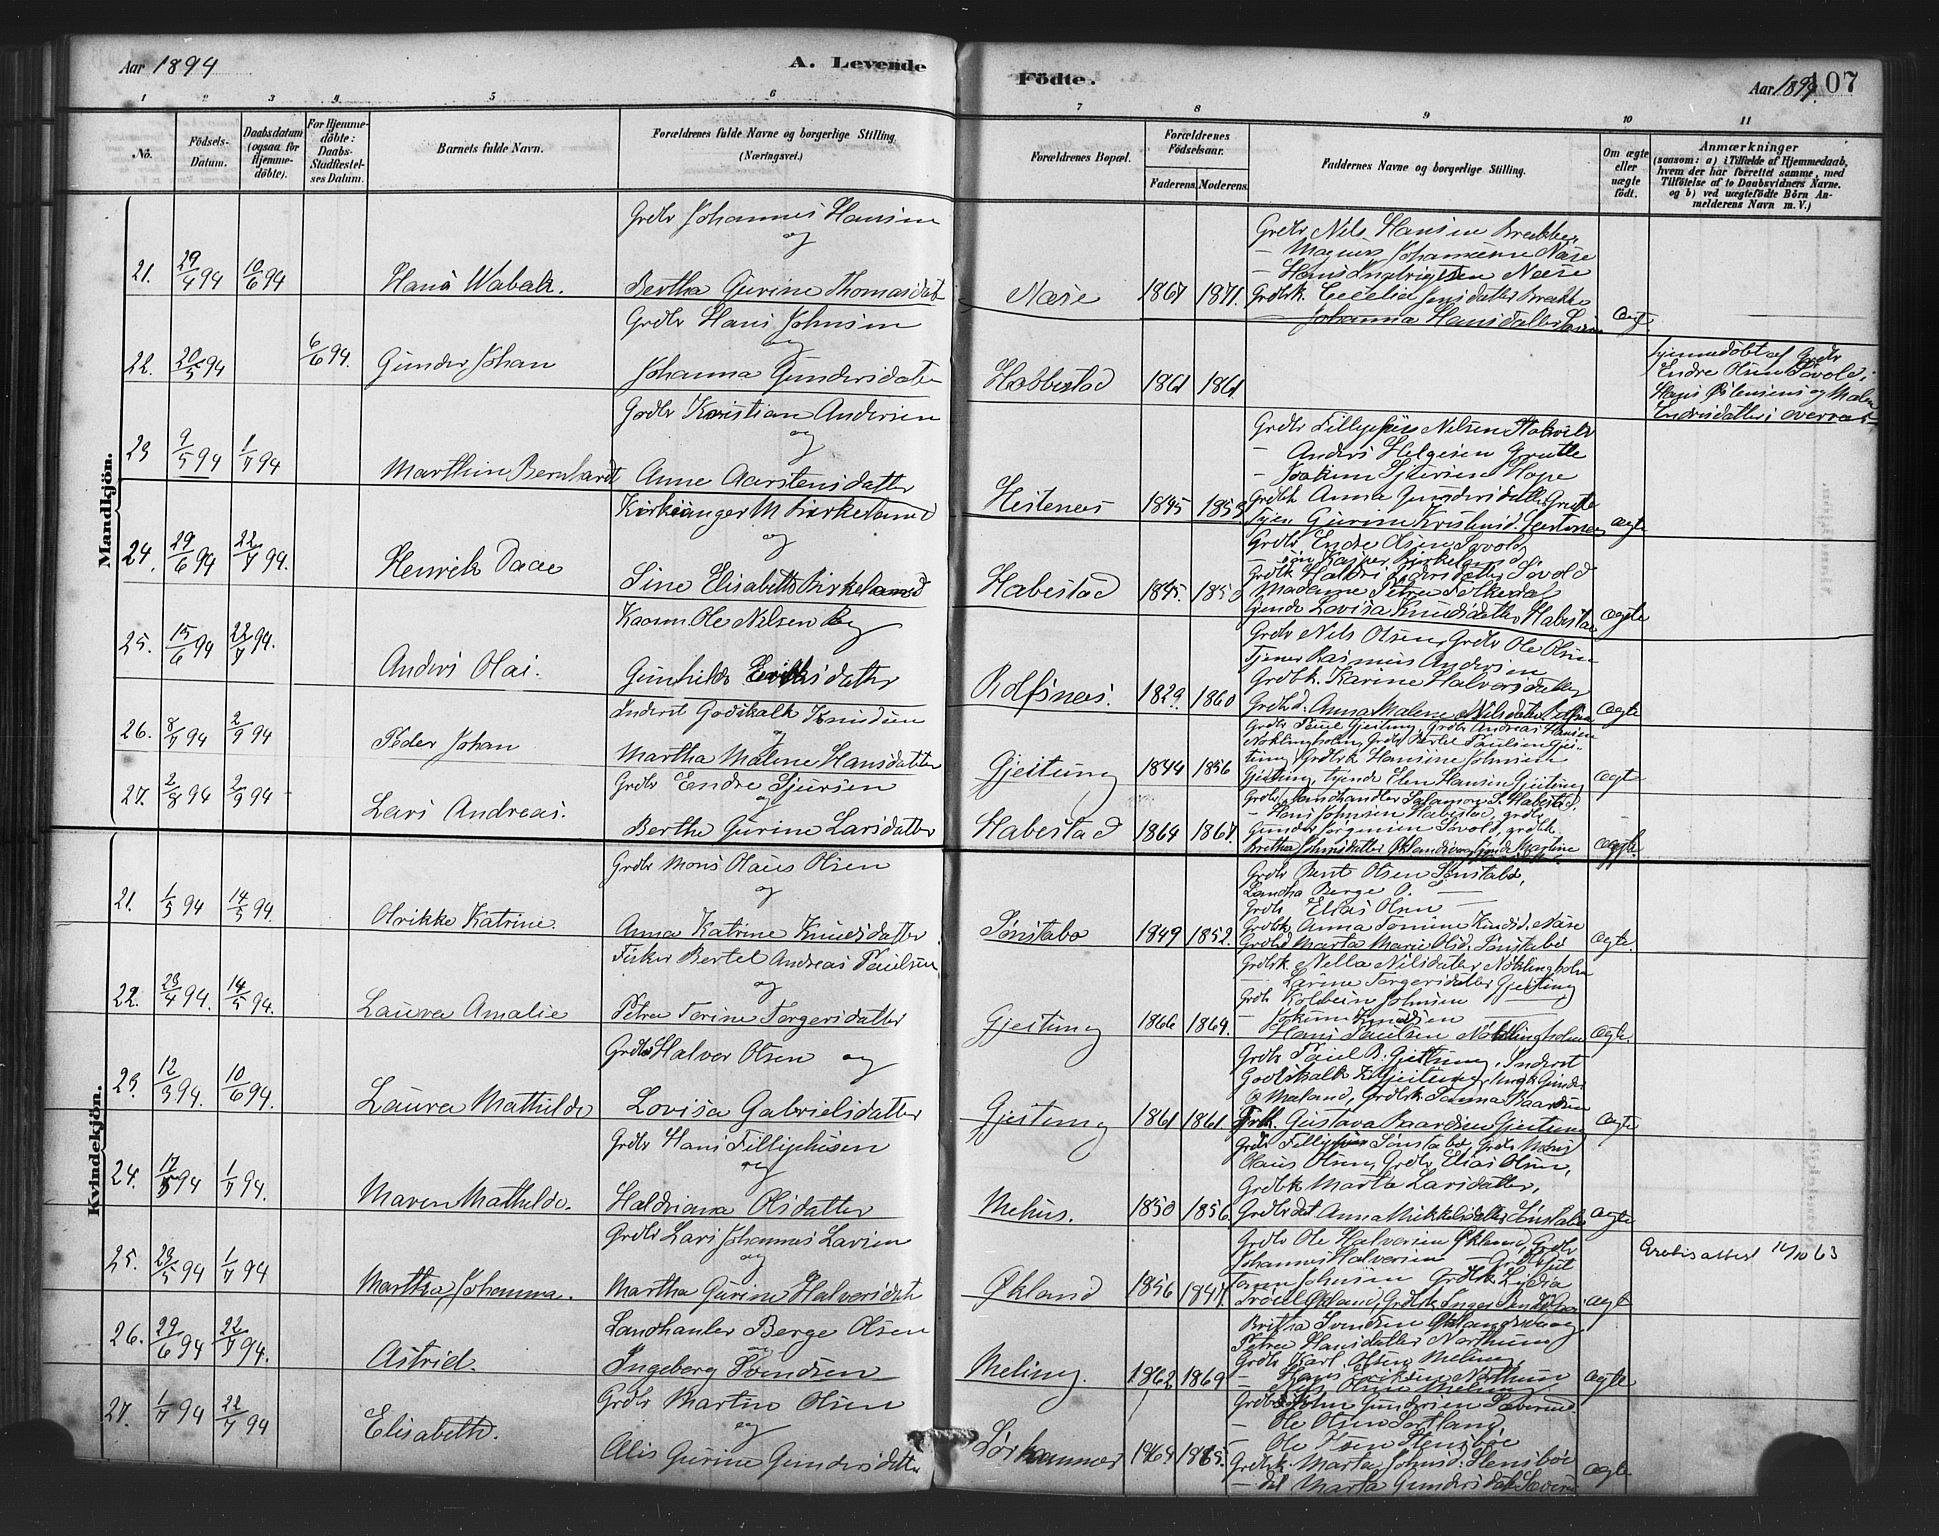 Aar 1894
A. Levende
Födte.
Aar 1894.
107
1 2 3 4 5 6 7 8 9 10 11
No.
Födsels-Datum.
Daabsdatum (ogsaa for Hjemme-döbte).
For Hjemme-döbte: Daabs-Stadfæstel-ses Datum.
Barnets fulde Navn.
Forældrenes fulde Navne og borgerlige Stilling.
(Næringsvei.)
Forældrenes Bopæl.
Forældrenes Födselsaar.
Faderens. Moderens.
Faddernes Navne og borgerlige Stilling.
Om ægte eller uægte födt.
Anmærkninger
(saasom: a) i Tilfælde af Hjemmedaab, hvem der har forrettet samme, med Tilföielse af to Daabsvidners Navne. og b) ved uægtefödte Börn Anmelderens Navn m. V.)
Mandkjön.
21. 29/4 94 10/6 94 Hans Wabak.
Grdbr Johannes Hansen
og
Bertha Gurine Thomasdat
Næse 1867 1871.
Grdbr Nils Hansen Brække
- Magnus Johannesen Næse
- Hans Ingbrigtsen Næse
Grdbrk. Cecelia Jensdatter Brække
Johanna Hansdatter
ægt.
22. 20/5 94 6/6 94. Gunder Johan
Grdbr Hans Johnsen
og
Johanna Gundersdatter
Habbestad 1861 1861
Hjemmedøbt af Grdbr
Endre Olsen Søvold i
Hans Østensens og Malene
Endresdatters overvær
23 9/5 94 1/7 94 Marthin Bernhardt
Grdbr Kristian Andersen
og
Anne Aarstensdatter
Hestenes 1845 1853
Grdbr Fillippus Nilsen
- Anders Helgesen Grutle
- Joakim Sjursen Hope
Grdbk Anna Gundersdatter Grutle
Tjen Gurine Kristiansd. Hestenes
ægte
24. 29/6 94 22/7 94. Henrik Daae
Kirkesanger M Birkeland
og
Sine Elisabeth Birkeland
Habestad 1845. 1850
Grdbr Endre Olsen Søvold
- søn Kasper Birkeland
Grdbk Larsdatter Søvold
Madame Petra Folkedal
Tjende Lovisa Knudsdatter Habestad
ægte
25. 15/6 94 22/7 94. Anders Olai.
Kaarm. Ole Nilsen og
Gunhilde Eriksdatter
Rolfsnes. 1829. 1860
Grdbr Nils Olsen, Grdbr Ole Olsen
Tjener Rasmus Andersen
Grdbk. Karine Halvorsdatter
Grdbd. Anna Malene Nilsdatter
ægte
26. 8/7 94 2/9 94 Peder Johan
Inderst Godskalk Knudsen
og
Martha Malene Hansdatter
Gjeitung 1844 1856
Grdbr Paul Gjeitung, Grdbr Andreas Hansen
Nøklingholm, Grdbr Bertel Paulsen Gjei-
tung Grdbrk Hansine Johnsen
Gjeitung, Tjende Elen Hansen Gjeitung
ægte
27. 2/8 94 2/9 94 Lars Andreas.
Grdbr Endre Sjursen
og
Berthe Gurine Larsdatter
Habestad 1864 1867.
Grdbr Landhandler Salamon S. Habestad.
- Hans Johnsen Habestad, grdbr
Gunder Jørgensen Søvold, grdbk
ægte.
Kvindekjön.
21. 1/5 94 14/5 94. Olrikke Katrine.
Grdbr Mons Olaus Olsen
og
Anna Katrine Knudsdatter
Sønstabø 1849 1852.
Grdbr Bent Olsen Sønstabø,
Landha Berge O. —
Grdbr Elias Olsen —
Grdbk. Anna Tomine Knudsd. Næse
Grdbd Marta Marie Olsd. Sønstabø
ægte.
22. 23/4 94. 14/5 94. Laura Amalie
Fisker Bertel Andreas Paulsen
og
Petra Torine Torgersdatter
Gjeitung 1866 1869.
Grdbrk. Nella Nilsdatter Nøklingholm
- Karine Torgersdatter Gjeitung
Grdbr Kolbein Johnsen —
- Jokum Knudsen —
Hans Paulsen Nøklingholm
ægte.
23. 12/3 94. 10/6 94. Laura Mathilde
Grdbr Halvor Olsen og
Lovisa Gabrielsdatter
Gjeitung 1861 1861
Grdbr Paul B. Gjeitung, Inderst
Godskalk K. Gjeitung, Ungk Gunder
O Mæland, Grdbrk Sanna Baardsen
Gustava Baardsen Gjeitung
ægte
24. 17/5 94 1/7 94. Maren Mathilde.
Grdbr Hans Fillipusen
og
Haldriana Olsdatter
Mehus. 1850 1856.
Grdbr Fillippus Sønstabø, Grdbr Mons
Olaus Olsen, Grdbr Elias Olsen,
Grdbk Marta Larsdatter,
Grdbrdat. Anna Mikkelsdatter Sønstabø
ægte
25. 23/5 94 1/7 94 Martha Johanna.
Grdbr Lars Johannes Larsen
og
Martha Gurine Halvorsdat
Økland 1856 1847.
Grdbr Ole Halvorsen Økland, Grdbr
Johannes Halvorsen —
Johnsen Grdbk Lydia
Økland, Grdbk Inger
ægte
attest 14/10 63
26. 29/6 94 22/7 94. Astrid.
Landhanler Berge Olsen
og
Ingeborg Svendsen
Meling. 1862 1869
Britha Svendsen Øklandsvaag
Petra Hansdatter Northun
Grdbr Karl Olsen Meling,
- Hans Eriksen Northun
- Nils Olsen Meling
ægte
27. 1/7 94 22/7 94 Elisabeth.
Grdbr Martin Olsen
og
Alis Gurine Gundersdatter
Sørhammer 1864 1865.
Grdbr John Gundersen Sæverud
- Ole Olsen Sortland,
- Ole Olsen Stensbøe
Grdbk. Marta Johnsd. Stensbøe
- dat Marta Gundersdat Sæverud
ægte